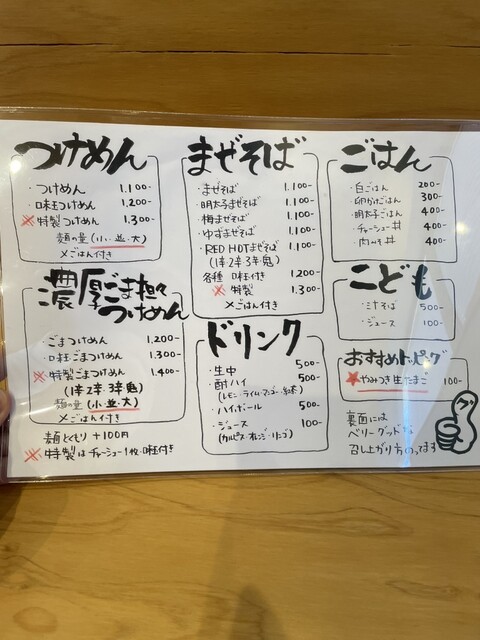 つけめん
・つけめん 1.100-
・味玉つけめん 1.200-
※特製つけめん 1.300-
麺の量(小・並・大)
〆ごはん付き
濃厚ごま担々つけめん
・ごまつけめん 1.200-
・味玉ごまつけめん 1.300-
※特製ごまつけめん 1.400-
(1辛2辛3辛鬼)
麺の量(小・並・大)
〆ごはん付き
麺大もり +100円
※特製はチャーシュー1枚・味玉付き
まぜそば
・まぜそば 1.100-
・明太まぜそば 1.100-
・梅まぜそば 1.100-
・ゆずまぜそば 1.100-
・RED HOTまぜそば 1.100-
(1辛2辛3辛鬼)
各種 味玉付き 1.200-
※特製 1.300-
〆ごはん付き
ドリンク
・生中 500-
・酎ハイ 500-
(レモン・ライム・マンゴー・紅茶)
・ハイボール 500-
・ジュース 100-
(カルピス・オレンジ・リンゴ)
ごはん
・白ごはん 200-
・卵かけごはん 300-
・明太子ごはん 400-
・チャーシュー丼 400-
・肉みそ丼 400-
こども
・ミニそば 500-
・ジュース 100-
おすすめトッピング
★やみつき生たまご 100-
裏面には
ベリーグッドな
召し上がり方のってます